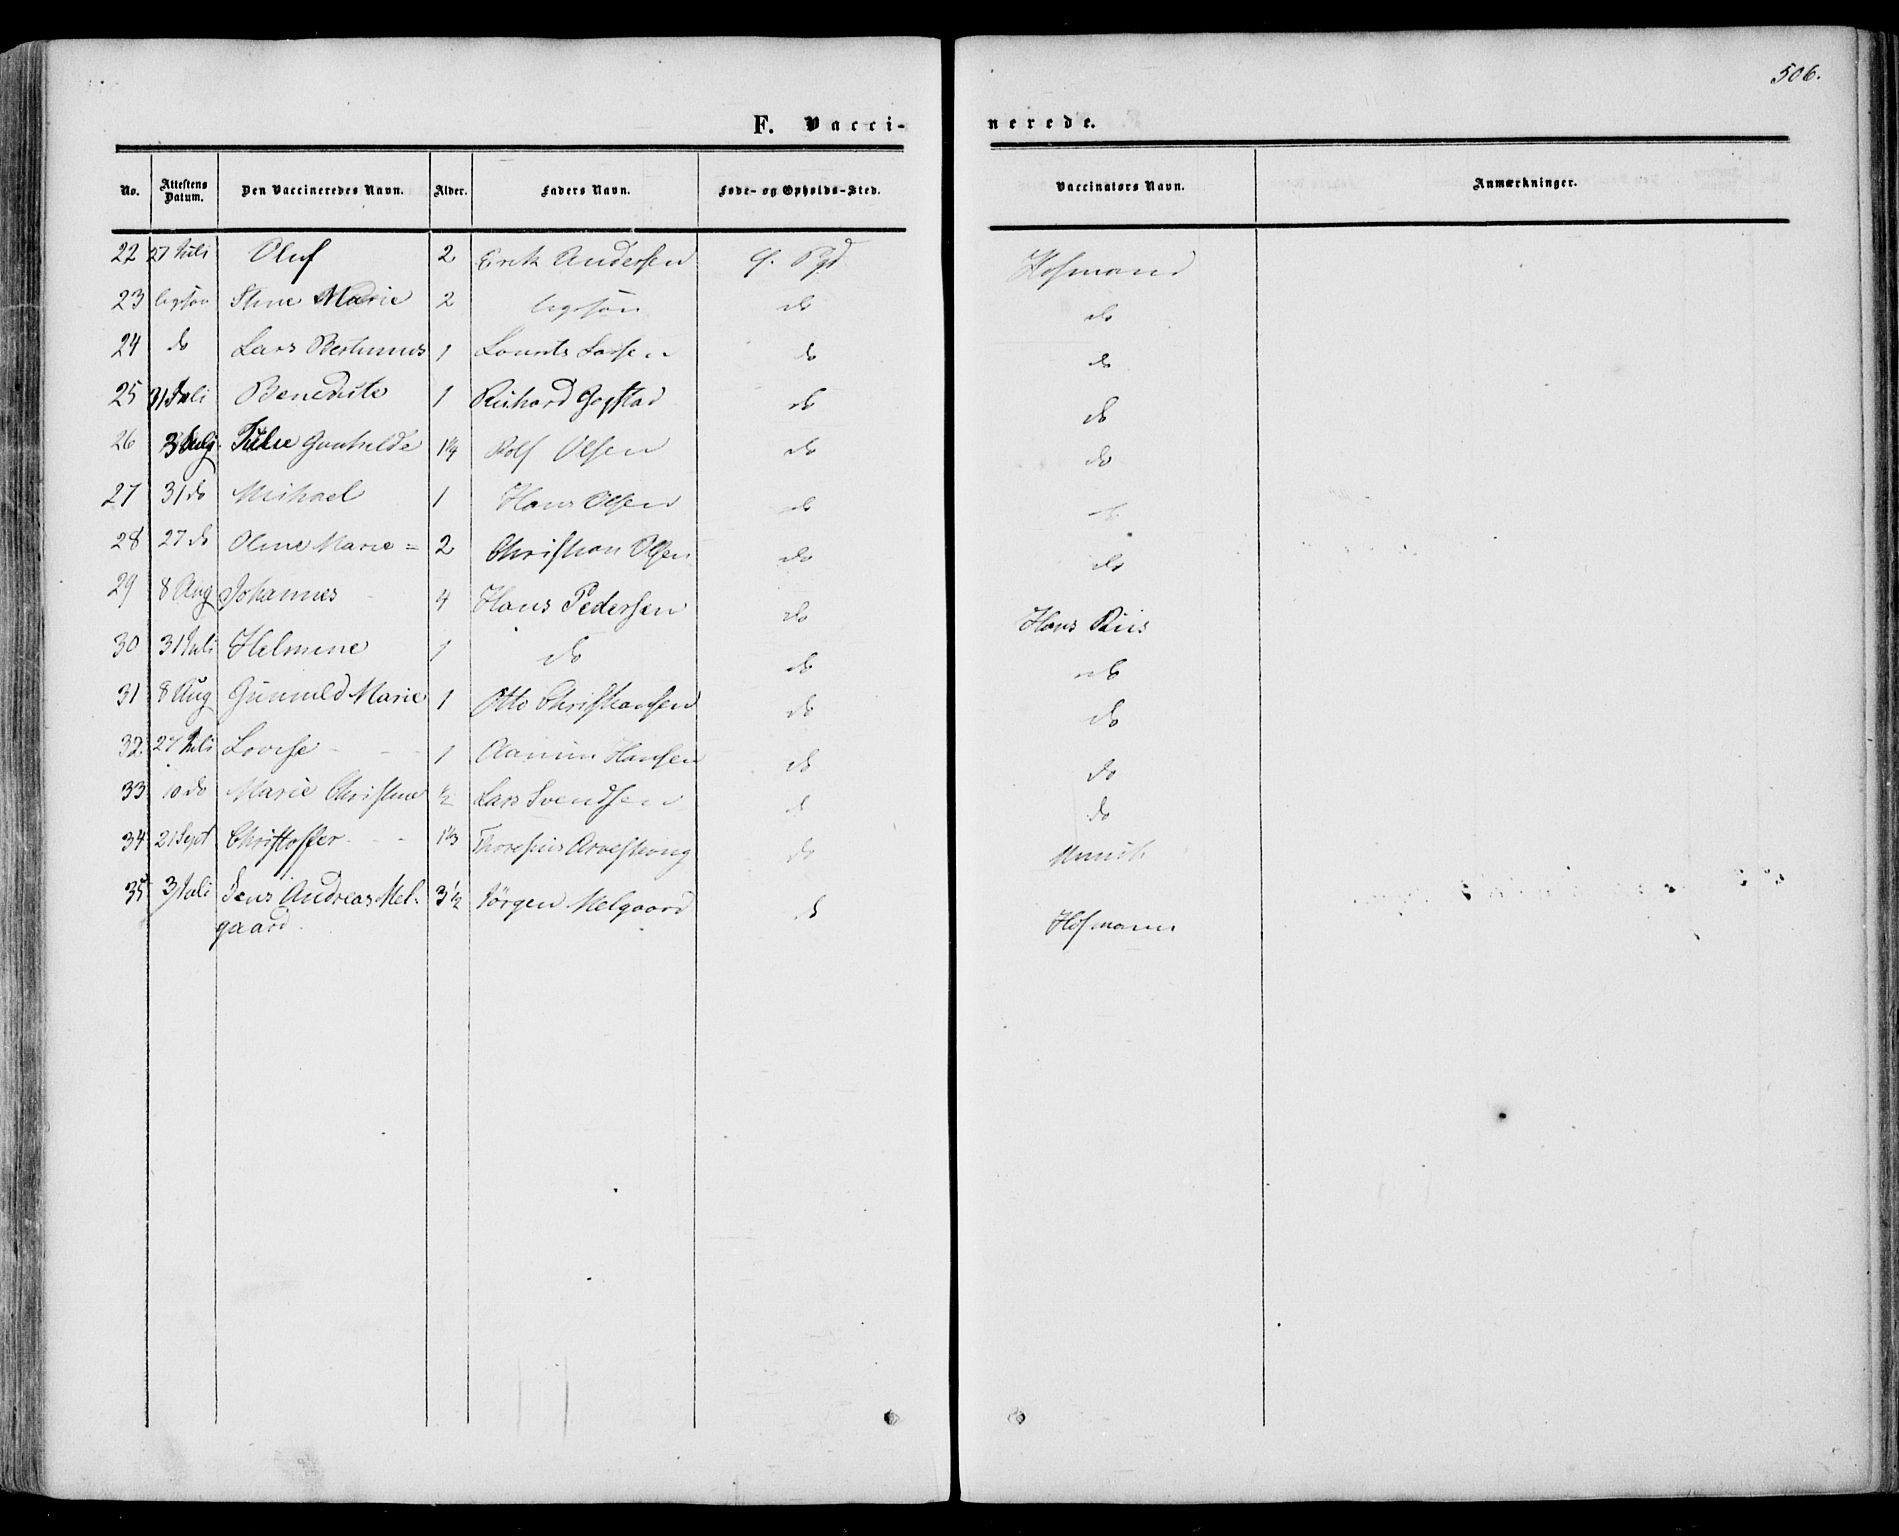 506.
F. Vacci-nerede.
No. Attestens Datum. Den Vaccineredes Navn. Alder. Faders Navn. Føde- og Opholds-Sted. Vaccinators Navn. Anmærkninger.
22 27 Juli Oluf 2 Erik Andersen Hofmand
23 ligesaa Stine Marie 2 ligesaa do do
24 do Lars 1 do do
25 31 Juli Benedicte 1 Richard Gogstad do do
26 Gunhilde 1¼ Rolf Olsen do do
27 31 do Michael 1 Hans Olsen do do
28 27 do Oline Marie = 2 Christian Olsen do do
29 8 Aug Johannes 4 Hans Pedersen do Hans Riis
30 31 Juli Helmine 1 do do do
31 8 Aug Gunnild Marie 1 Otto Christiansen do do
32. 27 Juli Lovise 1 Hansen do do
33 10 do Marie Christine ½ Lars Svendsen do do
34 21 Sept Christoffer 1⅓ do
35 3 Juli Jens Andreas Mel- 3½ Jørgen Melgaard do Hofmann
gaard.